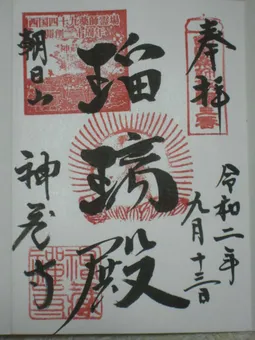 奉拝
令和二年
九月十三日
瑠璃殿
西国四十九薬師霊場
朝日山
神蔵寺